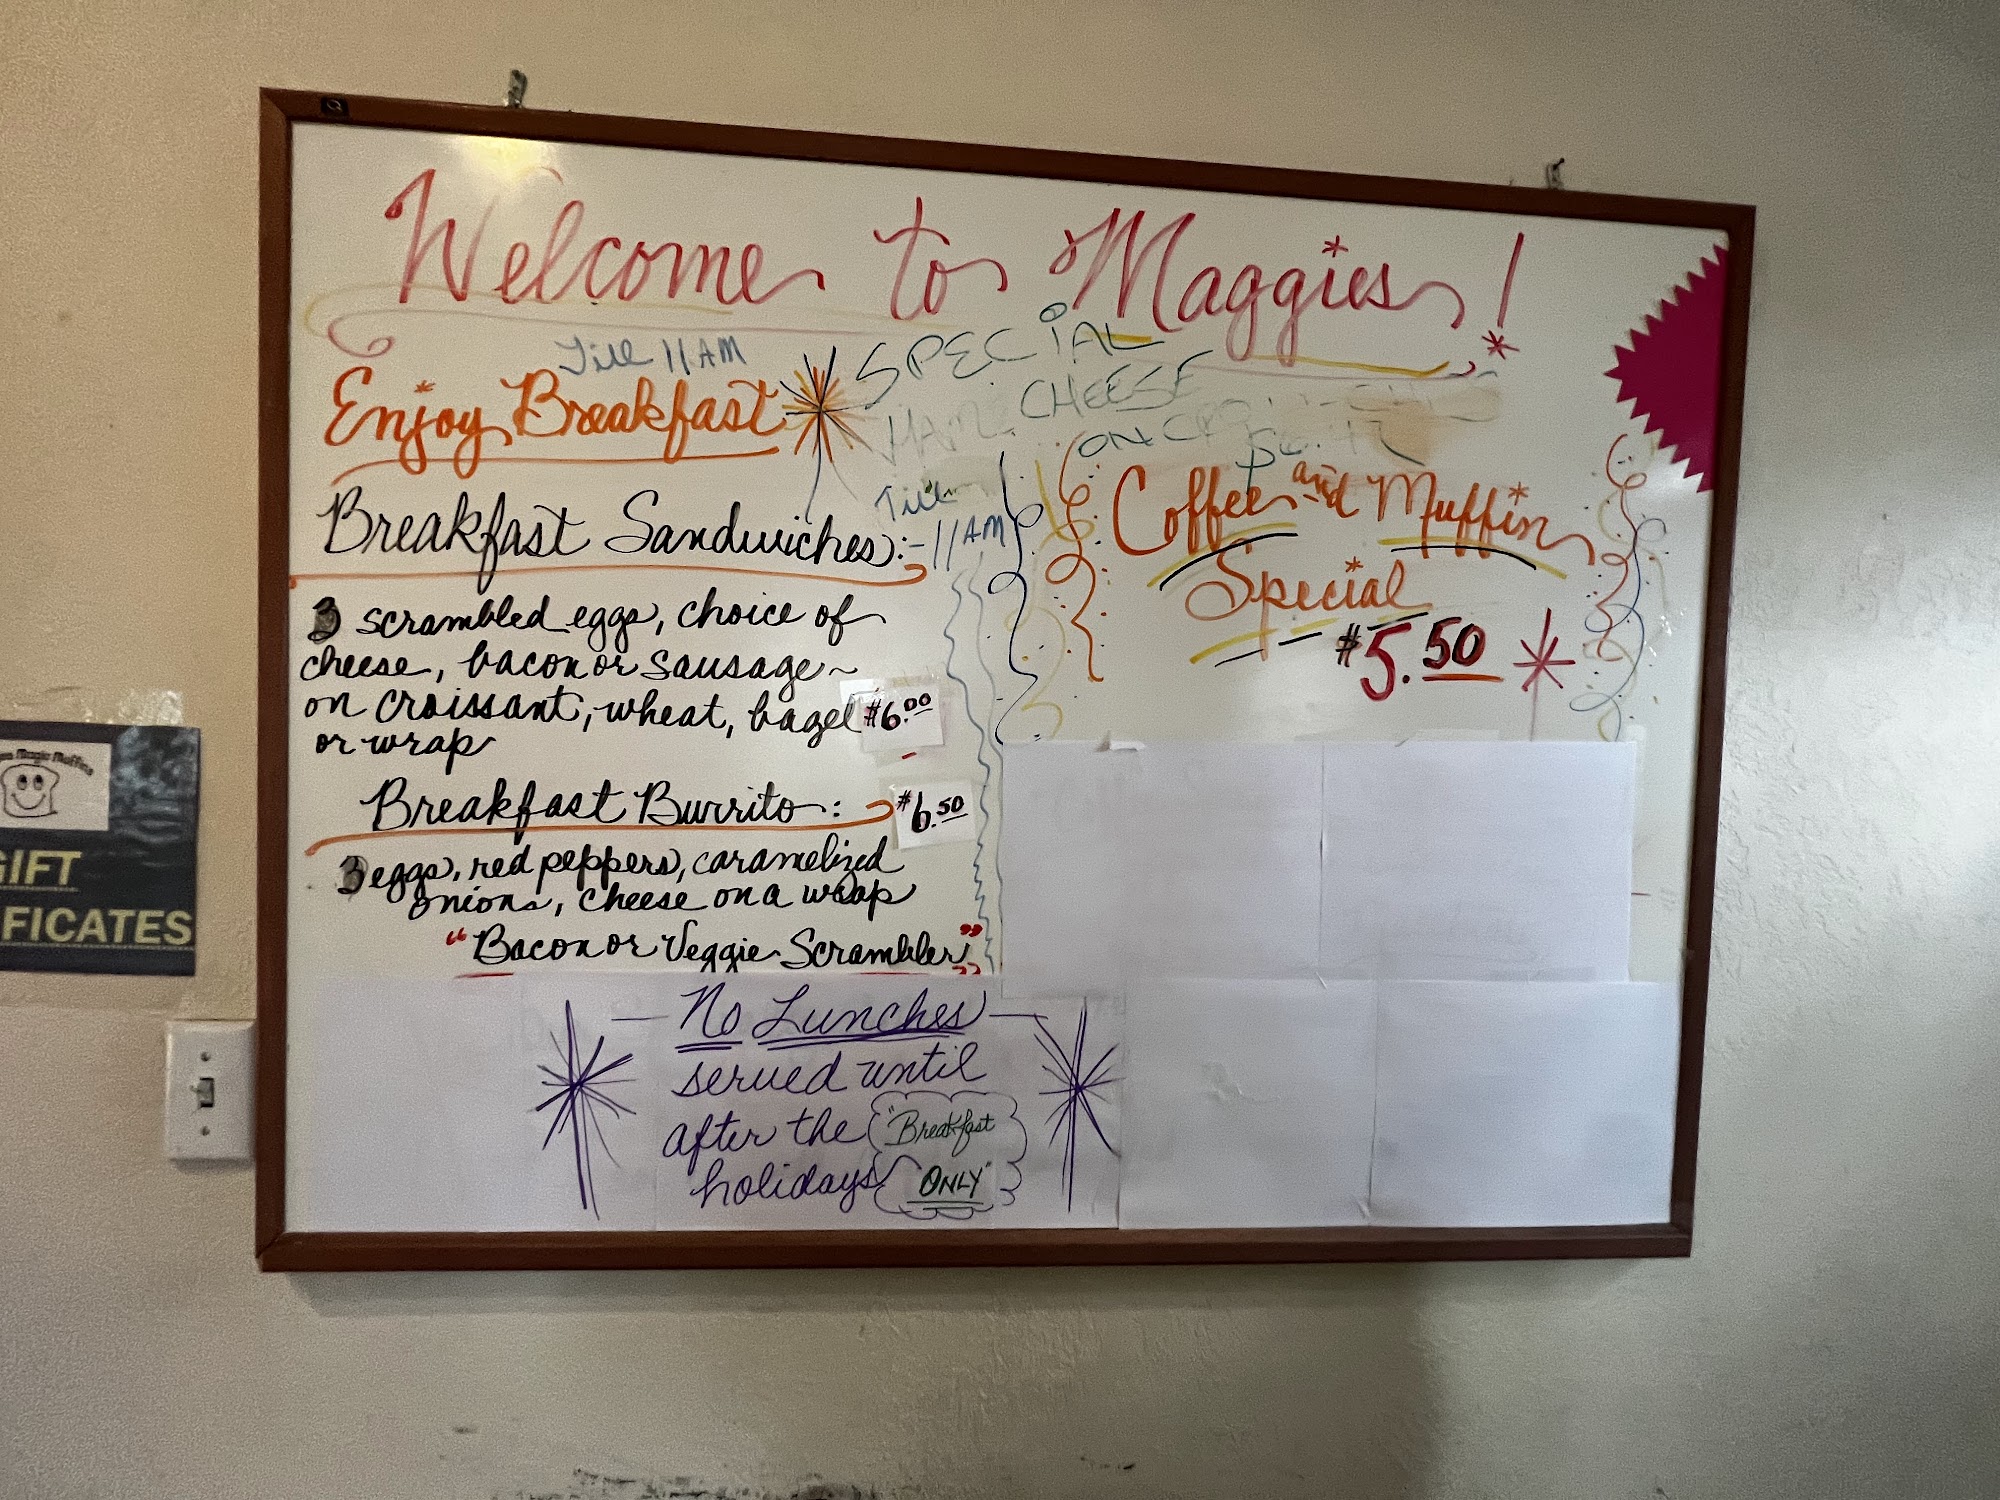 Welcome to Maggies!
Till 11AM
Enjoy Breakfast
SPECIAL
HAM CHEESE
ON
Breakfast Sandwiches:-
Till
11AM
3 scrambled eggs, choice of
cheese, bacon or sausage~
on croissant, wheat, bagel $6.00
or wrap
Breakfast Burrito: $6.50
3 eggs, red peppers, caramelized
onions, cheese on a wrap
"Bacon or Veggie Scrambler"
Coffee and Muffin
Special
$5.50
No Lunches
served until
after the
holidays
"Breakfast
ONLY"
Magic Muffins
GIFT
FICATES